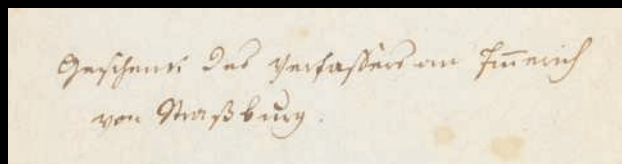 Geschenk des Verfassers an Im̅erich
von Straßburg.